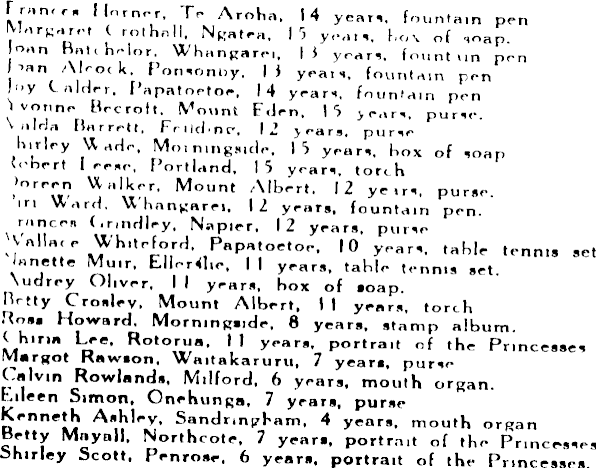 Frances Horner, Te Aroha, 14 years, fountain pen
Margaret Crothall, Ngatea, 15 years, box of soap.
Joan Batchelor, Whangarei, 13 years, fountain pen
Joan Alcock, Ponsonby, 13 years, fountain pen
Joy Calder, Papatoetoe, 14 years, fountain pen
Yvonne Becroft, Mount Eden, 15 years, purse.
Valda Barrett, Feilding, 12 years, purse
Shirley Wade, Morningside, 15 years, box of soap
Robert Leese, Portland, 15 years, torch
Doreen Walker, Mount Albert, 12 years, purse.
Ward, Whangarei, 12 years, fountain pen.
Frances Grindley, Napier, 12 years, purse
Wallace Whiteford, Papatoetoe, 10 years, table tennis set
Nanette Muir, Ellerslie, 11 years, table tennis set.
Audrey Oliver, 11 years, box of soap.
Betty Crosley, Mount Albert, 11 years, torch
Ross Howard, Morningside, 8 years, stamp album.
Lee, Rotorua, 11 years, portrait of the Princesses
Margot Rawson, Waitakaruru, 7 years, purse
Calvin Rowlands, Milford, 6 years, mouth organ.
Eileen Simon, Onehunga, 7 years, purse
Kenneth Ashley, Sandringham, 4 years, mouth organ
Betty Mayall, Northcote, 7 years, portrait of the Princesses
Shirley Scott, Penrose, 6 years, portrait of the Princesses.